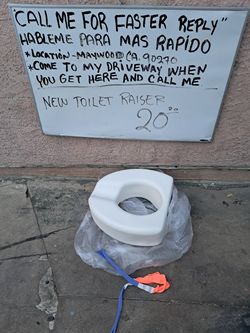 "CALL ME FOR FASTER REPLY"
HABLEME PARA MAS RAPIDO
*LOCATION-MAYWOOD CA. 90270
*COME TO MY DRIVEWAY WHEN
YOU GET HERE AND CALL ME
NEW TOILET RAISER
20.00